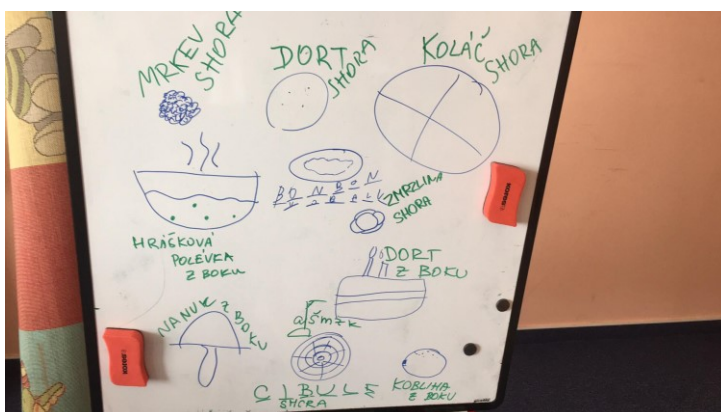 MRKEV
SHORA
DORT
SHORA
KOLÁČ
SHORA
BONBON
Z BOKU
ZMRZLINA
SHORA
HRÁŠKOVÁ
POLÉVKA
Z BOKU
DORT
Z BOKU
NANUK Z BOKU
a š m z k
CIBULE
SHORA
KOBLIHA
Z BOKU